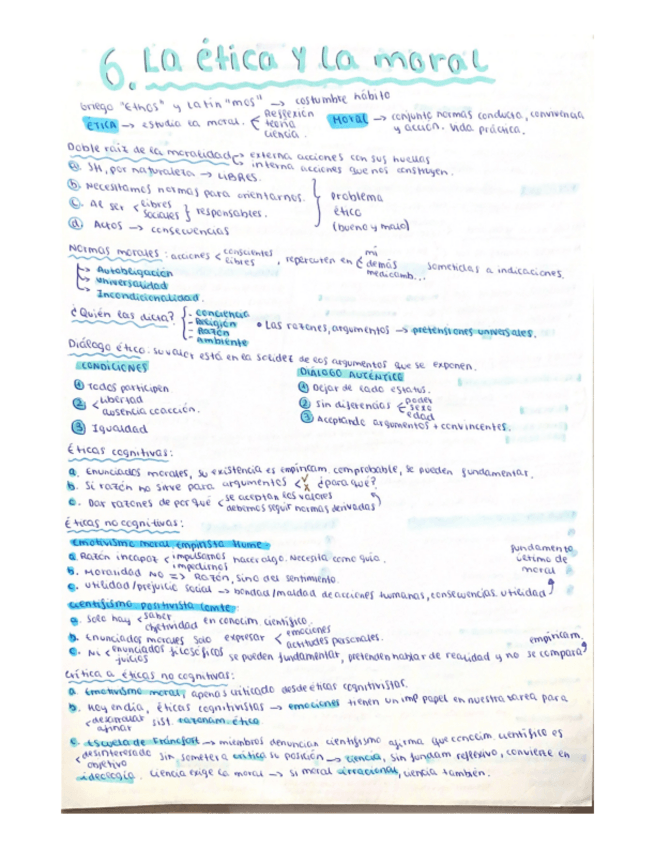 6. La ética y la moral
Griego "Ethos" y latín "mos" → costumbre hábito
ÉTICA → estudio la moral. < Reflexión teoría ciencia. MORAL → conjunto normas conducta, convivencia
y acción. Vida práctica.
Doble raíz de la moralidad → externa acciones con sus huellas
→ interna acciones que nos construyen.
a. SH, por naturaleza → LIBRES.
b. Necesitamos normas para orientarnos.
c. Al ser < libres sociales } responsables.
d Actos → consecuencias
} Problema
ético
(bueno y malo)
Normas morales: acciones < conscientes libres , repercuten en < mi demás medioamb... sometidas a indicaciones.
→ Autobligación
→ Universalidad
→ Incondicionalidad.
¿Quién las dicta? { - Conciencia
- Religión
- Razón
- Ambiente
• Las razones, argumentos → pretensiones universales.
Diálogo ético: su valor está en la solidez de los argumentos que se exponen.
CONDICIONES
① Todos participen
② < libertad
ausencia coacción.
③ Igualdad
DIÁLOGO AUTÉNTICO
① Dejar de lado estatus.
② Sin diferencias < poder sexo edad
③ Aceptando argumentos + convincentes.
Éticas cognitivas:
a. Enunciados morales, su existencia es empíricam. comprobable, se pueden fundamentar.
b. Si razón no sirve para argumentos < ✓ x ¿para qué?
c. Dar razones de por qué < se aceptan los valores
debemos seguir normas derivadas
Éticas no cognitivas:
Emotivismo moral, empirista Hume
a Razón incapaz < impulsarnos impedirnos hacer algo. Necesita como guía.
b. Moralidad NO => Razón, sino del sentimiento.
c. Utilidad/prejuicio social → bondad/maldad de acciones humanas, consecuencias. utilidad
fundamento
último de
moral
Cientifismo positivista Comte:
a. Solo hay < saber objetividad en conocim científico.
b. Enunciados morales solo expresar < emociones
actitudes personales.
c. Ni < enunciados filosóficos juicios se pueden fundamentar, pretenden hablar de realidad y no se compara
empíricam.
Crítica a éticas no cognitivas:
a. Emotivismo moral, apenas criticado desde éticas cognitivistas.
b. Hoy en día, éticas cognitivistas → emociones tienen un imp papel en nuestra tarea para
< desarrollar afinar sist. razonam. ético
c. Escuela de Francfort → miembros denuncian cientifismo afirma que conocim científico es
< desinteresado objetivo sin someter a crítica su posición → ciencia, sin fundam reflexivo, convierte en
ideología. Ciencia exige la moral → si moral irracional, ciencia también.